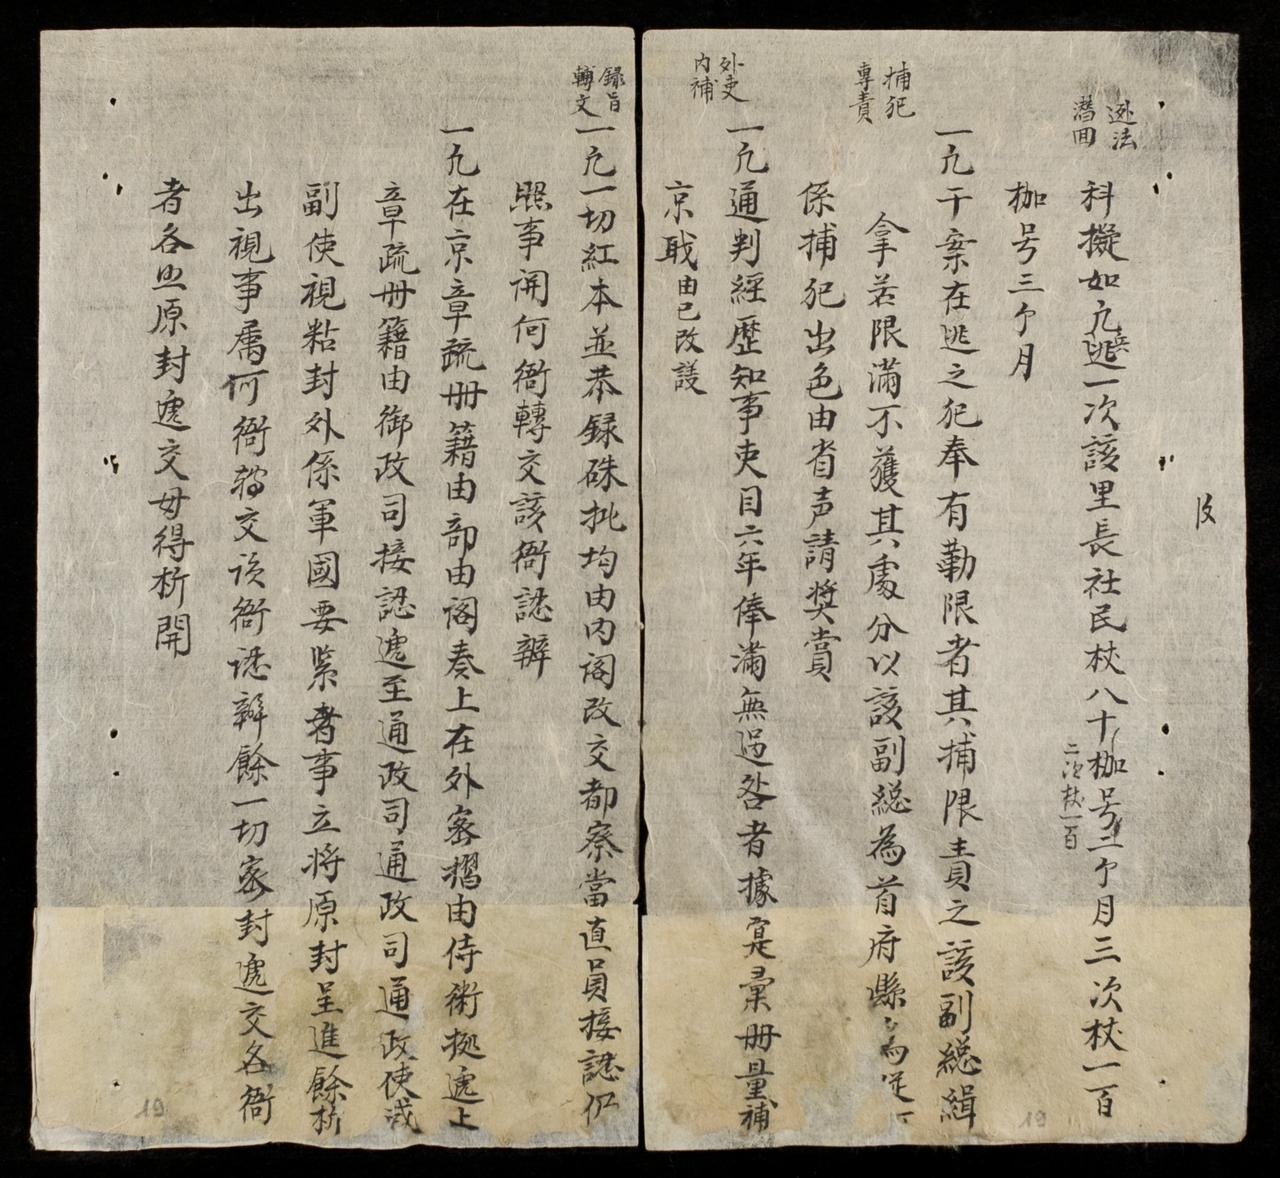 逃法
潛回
科擬如凡逃一次該里長社民杖八十枷号二个月三次杖一百
兵
二次杖一百
枷号三个月
捕犯
專責
一凡干案在逃之犯奉有勒限者其捕限責之該副總緝
拿若限滿不獲其處分以該副総為首府縣為從
係捕犯出色由省声請獎賞
外吏
内補
一凡通判經歷知事吏目六年俸滿無過咎者據寔彙册量補
京職由已改議
録旨
轉文
一凡一切紅本並恭録硃批均由内阁改交都察當直員接認仍
照事開何衙轉交該衙認辦
一凡在京章疏册籍由部由阁奏上在外密摺由侍衛接遞上
章疏册籍由御政司接認遞至通政司通政司通政使或
副使視粘封外係軍國要緊者事立将原封呈進餘拆
出視事属何衙轉交该衙認辦餘一切密封遞交各衙
者各照原封遞交毋得拆開
19
19